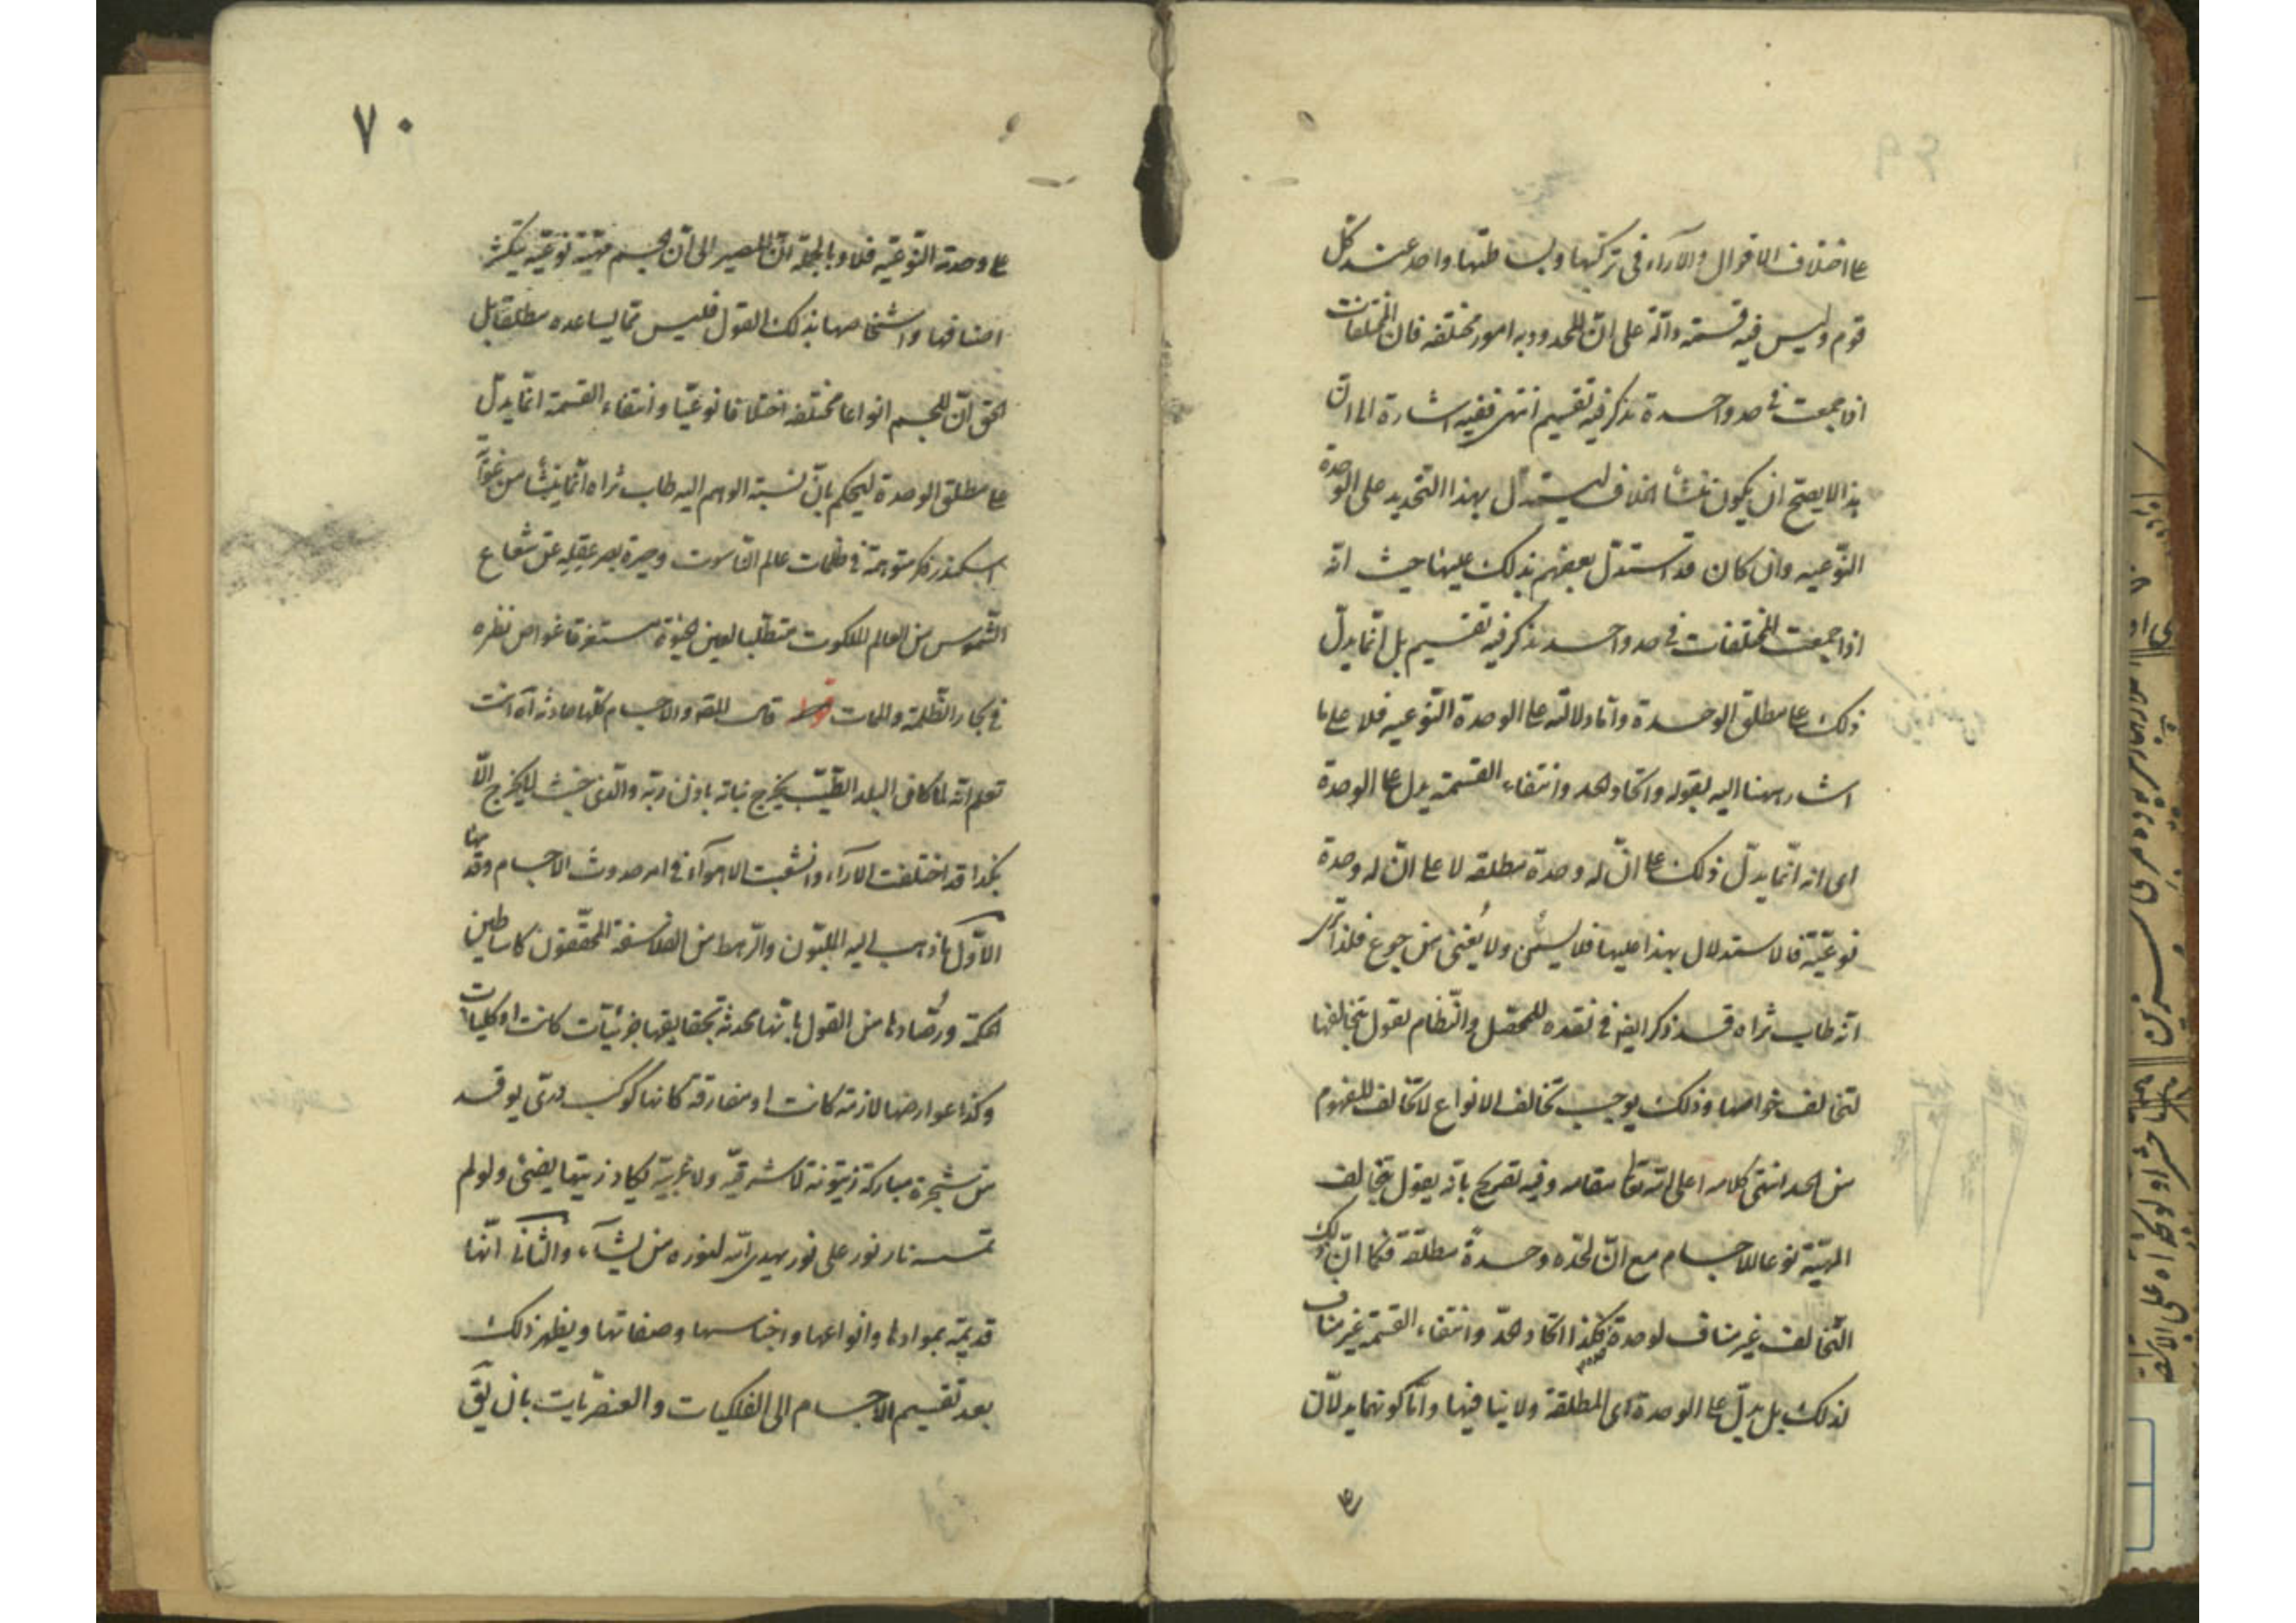 على اختلاف الاقوال والآراء فى تركبها وبساطتها واحد عند كل
قوم وليس فيه قسمة دالة على ان المحدود به امور مختلفة فان المختلفات
اذا جمعت فى حد واحد ة نذكر فيه تقسيم انتهى ففيه اشارة الى ان
هذا لا يصح ان يكون منشأ الخلاف ليستدل بهذا التحديد على الوحدة
النوعيه وان كان قد استدل بعضهم بذلك عليها حيث انه
اذا جمعت المختلفات فى حد واحد نذكر فيه تقسيم بل انما يدل
ذلك على مطلق الوحدة واما دلالته على الوحدة النوعيه فلا على ما
اشار ههنا اليه بقوله واتحاد الحد وانتفاء القسمة يدل على الوحدة
اى انه انما يدل ذلك على ان له وحدة مطلقه لا على ان له وحدة
نوعيّة فالاستدلال بهذا عليها فلا يسمن ولا يُغنى من جوع فلذا ترى
انه طاب ثراه قد ذكر ايضا فى نقده للمحصل والنظام يقول بتخالفها
لتخالف خواصها وذلك يوجب تخالف الانواع لا تخالف المفهوم
من الحد انتهى كلامه اعلى الله تعالى مقامه وفيه تصريح بانه يقول بتخالف
المهيّة نوعا للاجسام مع ان لحدّه وحدةً مطلقة فكما ان ذلك
التخالف غير مناف لوحدة حده فكذا اتحاد الحدّ وانتفاء القسمة غير مناف
لذلك بل يدلّ على الوحدة اى المطلقة ولا ينافيها واما كونهما يدلان
٧٠
على وحدته النّوعيّه فلا وبالجملة انّ المصير الى ان الجسم مهيّة نوعيّه يتكثر
اصنافها واشخاصها بذلك القول فليس مما يساعده مطلقا بل
الحق انّ للجسم انواعا مختلفه اختلافا نوعيّا وانتفاء القسمة انما يدلّ
على مطلق الوحدة ليحكم بانّ نسبة الوهم اليه طاب ثراه انما ينشأ من
اسكندر فكر متوهمه فى ظلمات عالم الناسوت وحيرة بصر عقله عن شعاع
الشموس من العالم الملكوت متطلبا لعين الحيوة مستغرقا غواص نظره
فى بحار الظّلمة والممات قوله قال المصه والاجسام كلّها حادثة آه انت
تعلم انّه لما كان البلد الطّيّب يخرج نباته باذن ربّه والّذى خبث لا يخرج الّا
نكدا قد اختلفت الآراء وانشعبت الاهواء فى امر حدوث الاجسام وقدمها
الاوّل ما ذهب اليه المليّون والرّهط من الفلاسفة المحققون كاساطين
الحكمة ورُصّادها من القول بانها محدثة بحقايقها جزئيّات كانت او كليات
وكذا عوارضها لازمة كانت او مفارقة كانها كوكب درّى يوقد
من شجرة مباركة زيتونة لا شرقيّه ولا غربيّه يكاد زيتها يضئ ولو لم
تمسسه نار نور على نور يهدى الله لنوره من يشآء والثانى انّها
قديمة بموادها وانواعها واجناسها وصفاتها ويظهر ذلك
بعد تقسيم الاجسام الى الفلكيات والعنصريات بان يقّ